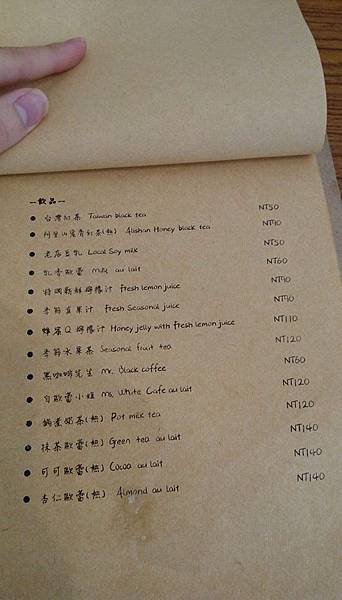 --飲品--
● 台灣紅茶 Taiwan black tea NT50
● 阿里山蜜香紅茶(熱) Alishan Honey black tea NT90
● 老店豆乳 Local Soy milk NT50
● 乳香歐蕾 Milk au lait NT60
● 特調新鮮檸檬汁 fresh lemon juice NT90
● 季節鮮果汁 Fresh Seasonal juice NT90
● 蜂蜜Q檸檬汁 Honey jelly with fresh lemon juice NT110
● 季節水果茶 Seasonal fruit tea NT120
● 黑咖啡先生 Mr. Black coffee NT60
● 白歐蕾小姐 Ms. White Cafe au lait NT120
● 鍋煮奶茶(熱) Pot milk tea NT120
● 抹茶歐蕾(熱) Green tea au lait NT140
● 可可歐蕾(熱) Cocoa au lait NT140
● 杏仁歐蕾(熱) Almond au lait NT140